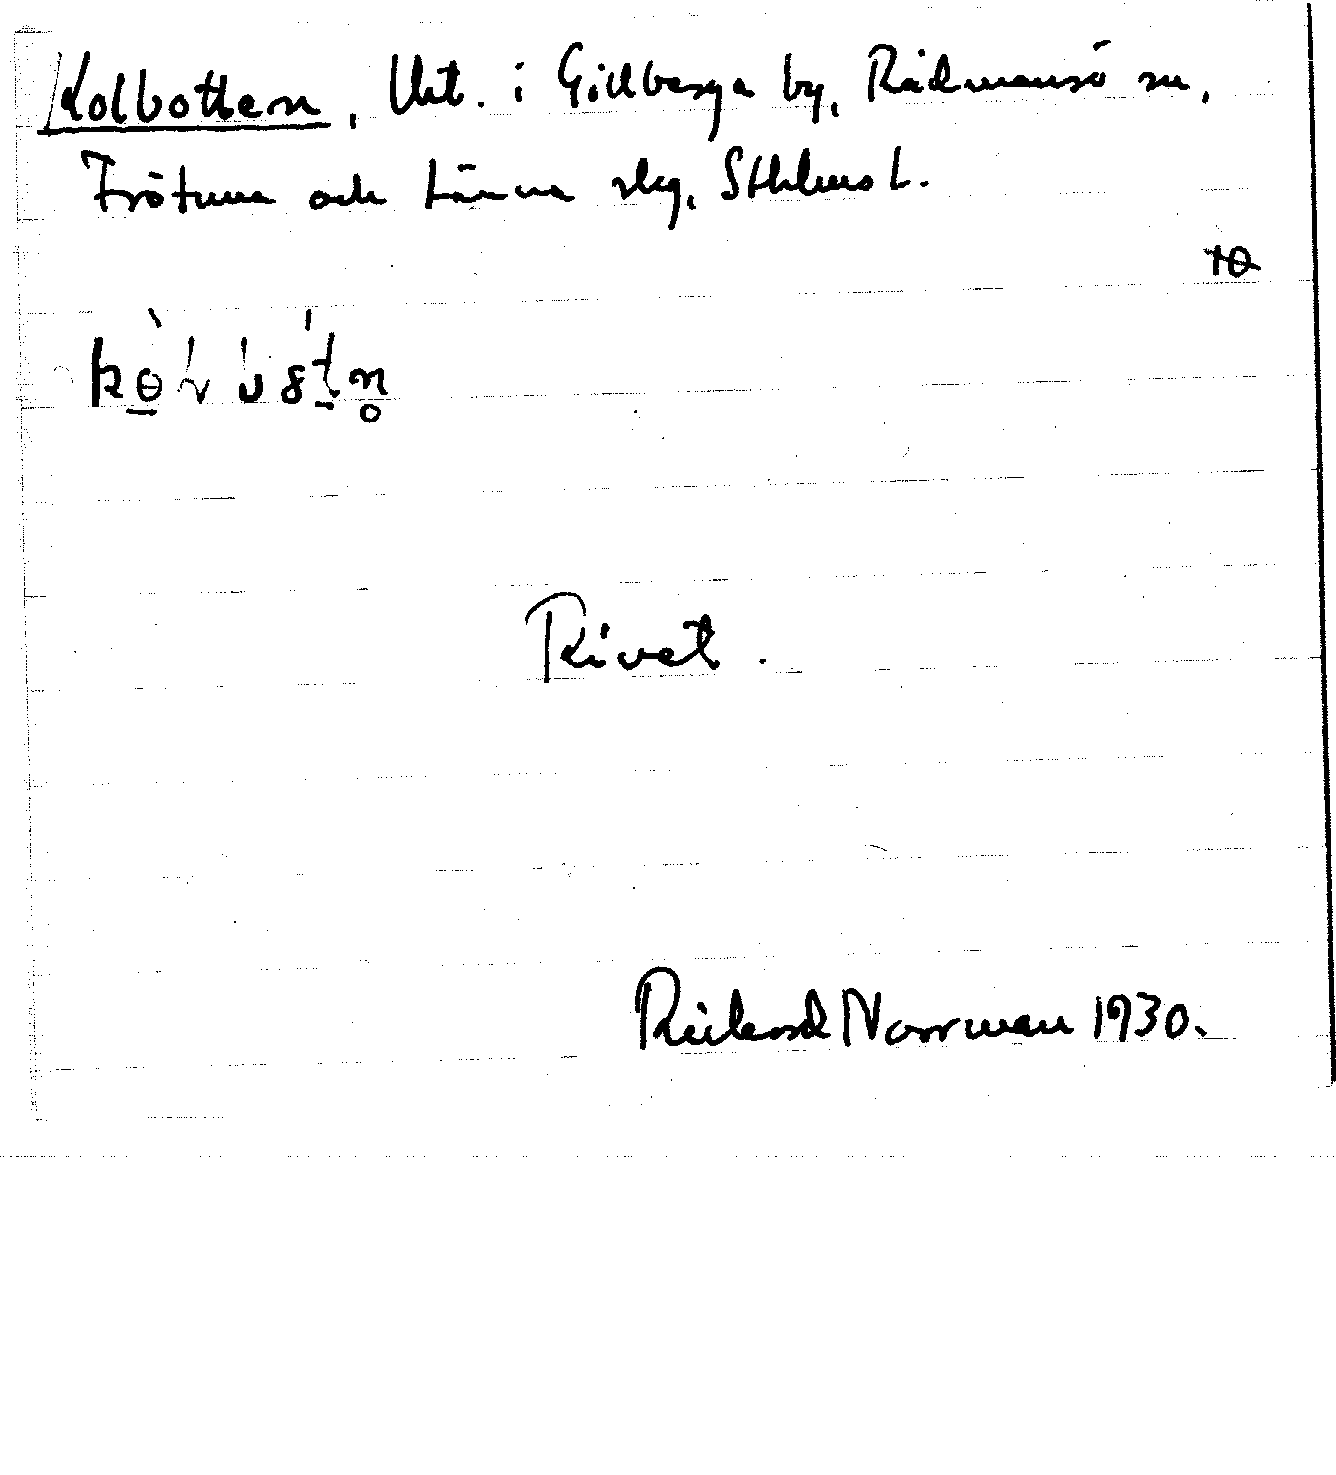 Kolbotten, Urt. i Gillberga by, Rådmansö sn,
Frötuna och Länna slg, Sthlms L.
10
Rivet.
Rickard Norrman 1930.